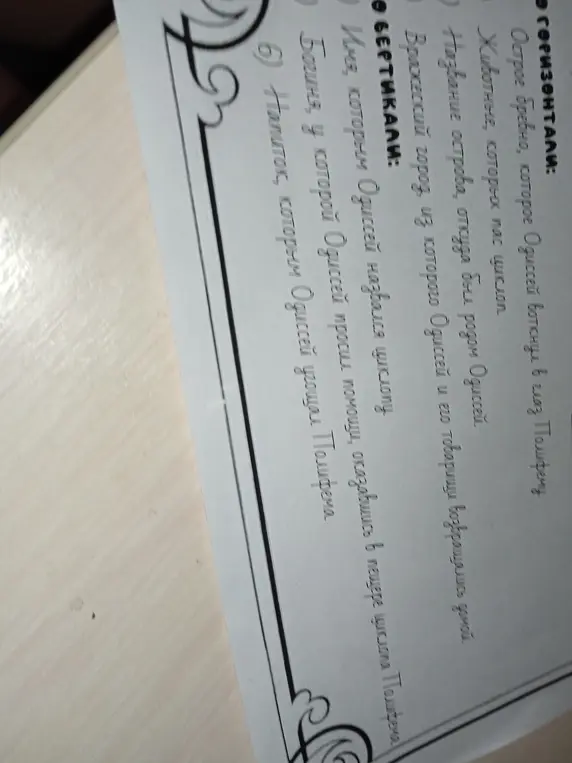 О ГОРИЗОНТАЛИ:
Острое бревно, которое Одиссей воткнул в глаз Полифему
Животные, которых пас циклоп
) Название острова, откуда был родом Одиссей
) Вражеский город, из которого Одиссей и его товарищи возвращались домой
О ВЕРТИКАЛИ:
) Имя, которым Одиссей назвался циклопу
) Богиня, у которой Одиссей просил помощи, оказавшись в пещере циклопа Полифема
6) Напиток, которым Одиссей угощал Полифема